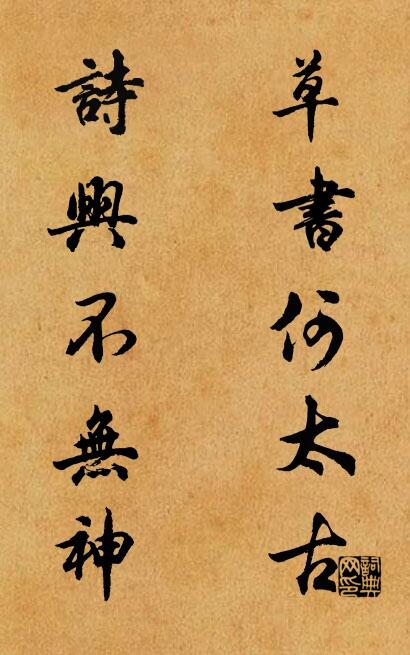 草書何太古
詩興不無神
詞典網印